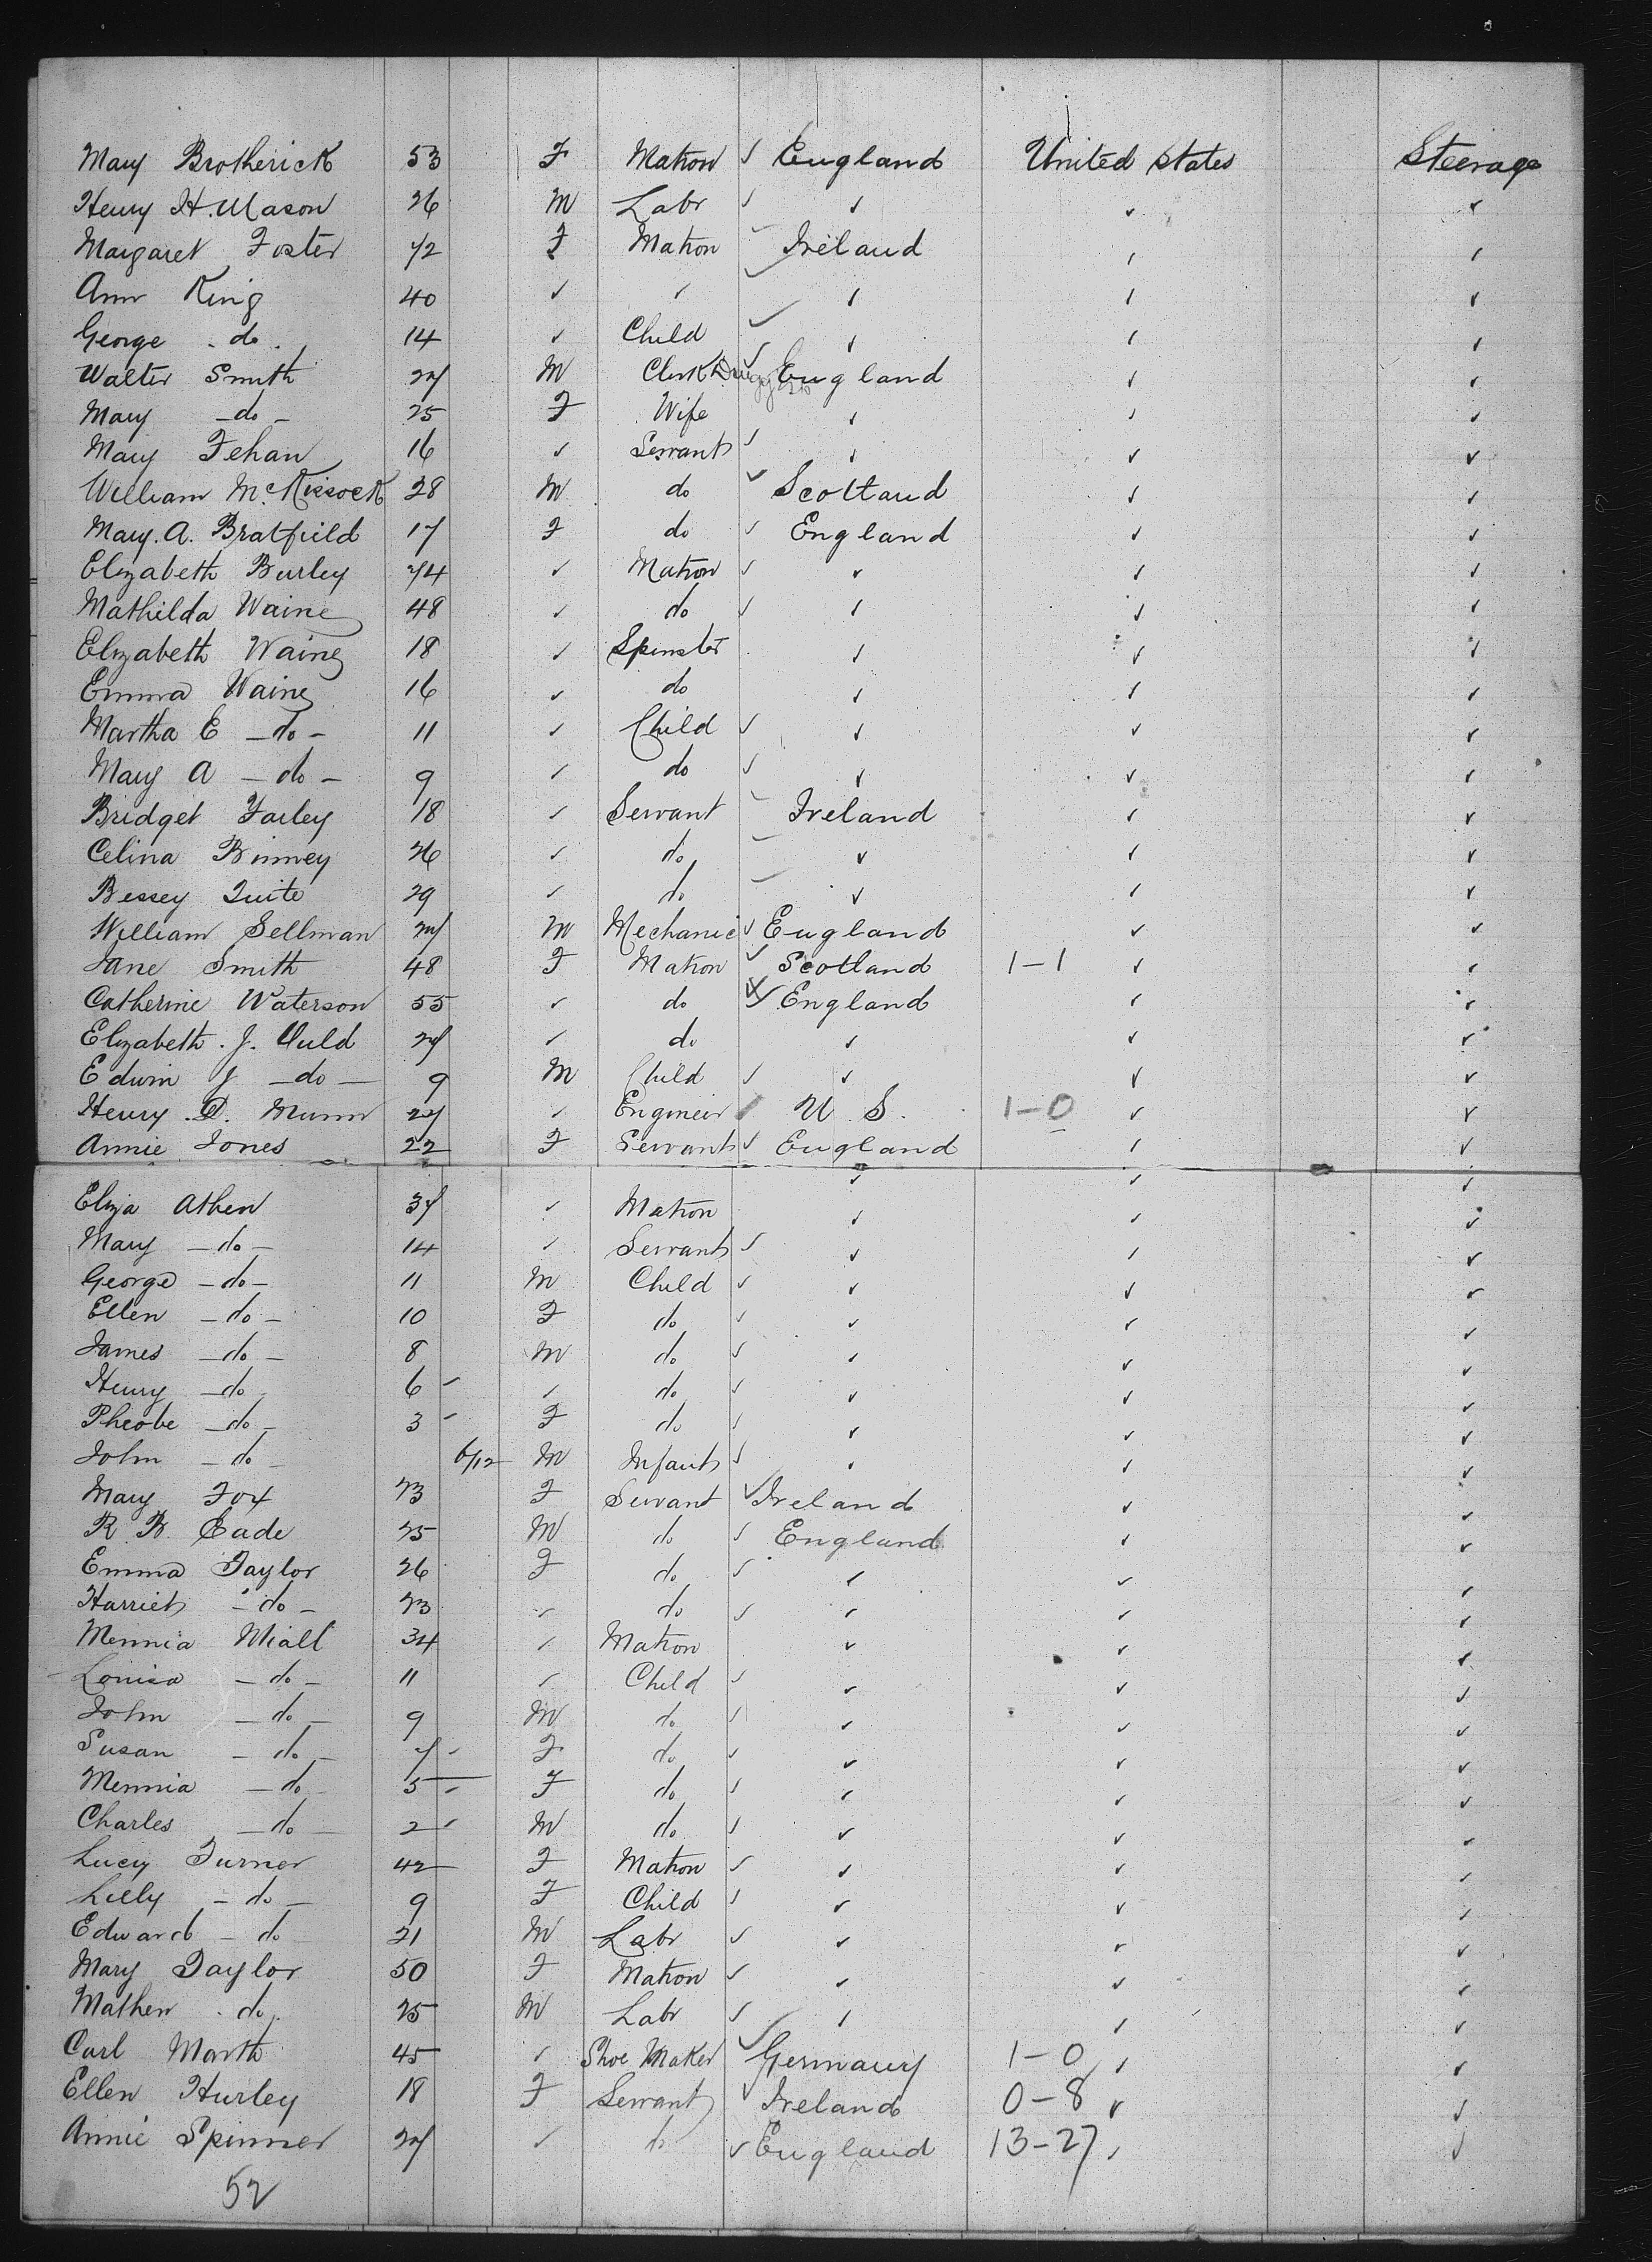 Mary Brotherick 53 F Matron ✓ England United States Steerage
Henry H. Mason 26 M Labr ✓ ✓ ✓ ✓
Margaret Foster 72 F Matron Ireland ✓ ✓
Ann King 40 ✓ ✓ ✓ ✓ ✓
George do 14 ✓ Child ✓ ✓ ✓
Walter Smith 27 M Clerk Druggist England ✓ ✓
Mary – do – 25 F Wife ✓ ✓ ✓
Mary Fehan 16 ✓ Servant ✓ ✓ ✓ ✓
William McKissock 28 M do ✓ Scotland ✓ ✓
Mary. A. Bratfield 17 F do ✓ England ✓ ✓
Elizabeth Burley 74 ✓ Matron ✓ ✓ ✓ ✓
Mathilda Waine 48 ✓ do ✓ ✓ ✓ ✓
Elizabeth Waine 18 ✓ Spinster ✓ ✓ ✓
Emma Waine 16 ✓ do ✓ ✓ ✓
Martha E – do – 11 ✓ Child ✓ ✓ ✓ ✓
Mary A – do – 9 ✓ do ✓ ✓ ✓ ✓
Bridget Farley 18 ✓ Servant Ireland ✓ ✓
Celina Binney 26 ✓ do ✓ ✓ ✓
Bessey Tuite 29 ✓ do ✓ ✓ ✓
William Sellman 27 M Mechanic ✓ England ✓ ✓
Jane Smith 48 F Matron ✓ Scotland 1–1 ✓ ✓
Catherine Waterson 55 ✓ do ✓ England ✓ ✓
Elizabeth. J. Auld 27 ✓ do ✓ ✓ ✓
Edwin J – do – 9 M Child ✓ ✓ ✓ ✓
Henry D. Munn 27 ✓ Engineer U S. 1–0 ✓ ✓
Annie Jones 22 F Servant ✓ England ✓ ✓
Eliza Athen 37 ✓ Matron ✓ ✓ ✓
Mary – do – 14 ✓ Servant ✓ ✓ ✓ ✓
George – do – 11 M Child ✓ ✓ ✓ ✓
Ellen – do – 10 F do ✓ ✓ ✓ ✓
James – do – 8 M do ✓ ✓ ✓ ✓
Henry – do 6 – ✓ do ✓ ✓ ✓ ✓
Pheobe – do – 3 – F do ✓ ✓ ✓ ✓
John – do – 6/12 M Infant ✓ ✓ ✓ ✓
Mary Fox 23 F Servant ✓ Ireland ✓ ✓
R B. Eade 25 M do ✓ England ✓ ✓
Emma Taylor 26 F do ✓ ✓ ✓ ✓
Harriet – do – 23 ✓ do ✓ ✓ ✓ ✓
Mennia Niall 34 ✓ Matron ✓ ✓ ✓
Louisa – do – 11 ✓ Child ✓ ✓ ✓ ✓
John – do – 9 M do ✓ ✓ ✓ ✓
Susan – do – 7 – F do ✓ ✓ ✓ ✓
Mennia – do – 5 – F do ✓ ✓ ✓ ✓
Charles – do – 2 – M do ✓ ✓ ✓ ✓
Lucy Turner 42 F Matron ✓ ✓ ✓ ✓
Lilly – do – 9 F Child ✓ ✓ ✓ ✓
Edward – do 21 M Labr ✓ ✓ ✓ ✓
Mary Taylor 50 F Matron ✓ ✓ ✓ ✓
Mathew do. 25 M Labr ✓ ✓ ✓ ✓
Carl Marth 45 ✓ Shoe Maker ✓ Germany 1–0 ✓ ✓
Ellen Hurley 18 F Servant ✓ Ireland 0–8 ✓ ✓
Annie Spinner 27 ✓ do ✓ England 13–27 ✓ ✓
52